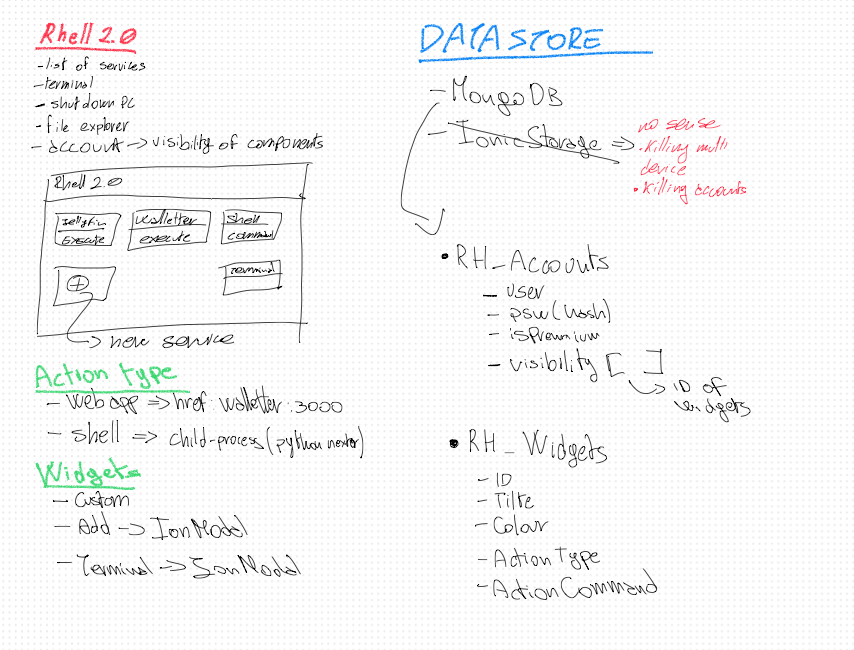 Rhell 2.0
- list of services
- terminal
- shutdown PC
- file explorer
- account -> visibility of components
Rhell 2.0
Jellyfin
Execute
Walletter
execute
Shell
command
Terminal
+
-> new service
Action type
- Web app => href: walletter:3000
- shell => child-process(python
Widgets
- Custom
- Add -> IonModal
- Terminal -> IonModal
DATA STORE
- MongoDB
- IonicStorage =>
no sense
• Killing multi
device
• Killing accounts
• RH_Accounts
- user
- psw (hash)
- isPremium
- visibility [ ]
-> ID of
widgets
• RH_Widgets
- ID
- Tilte
- Colour
- ActionType
- ActionCommand